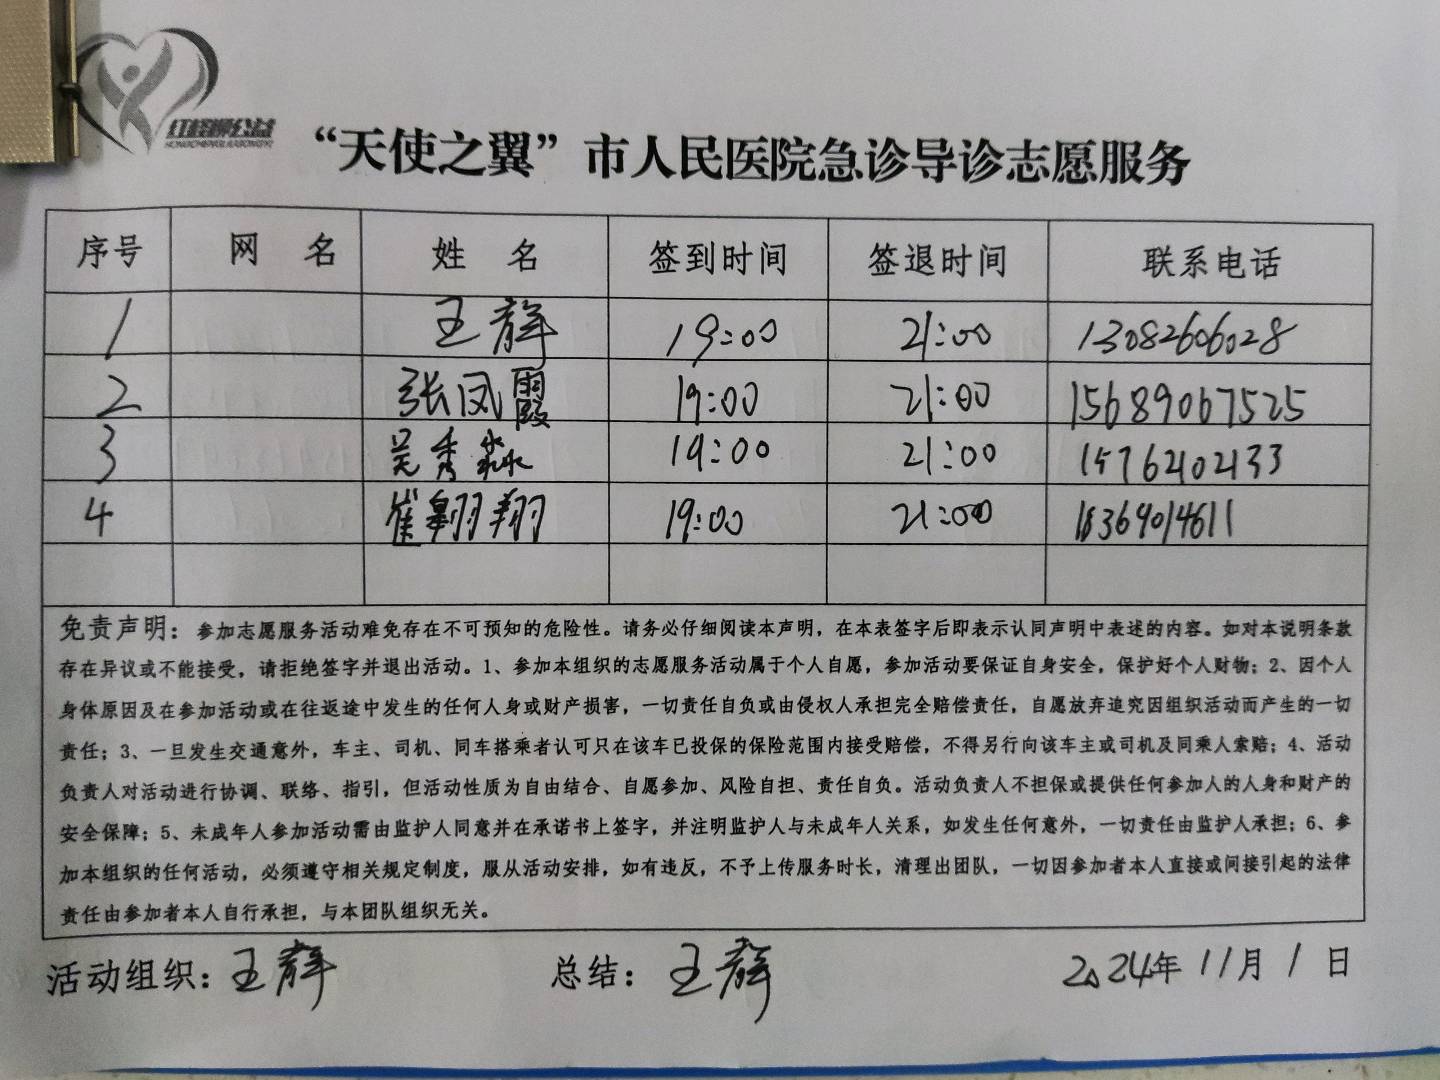 红柽柳公益
“天使之翼”市人民医院急诊导诊志愿服务
序号 网 名 姓 名 签到时间 签退时间 联系电话
1 王静 19:00 21:00 13082606028
2 张凤霞 19:00 21:00 15689067525
3 吴秀淼 19:00 21:00 15762102133
4 崔翱翔 19:00 21:00 18364014611
免责声明：参加志愿服务活动难免存在不可预知的危险性。请务必仔细阅读本声明，在本表签字后即表示认同声明中表述的内容。如对本说明条款
存在异议或不能接受，请拒绝签字并退出活动。1、参加本组织的志愿服务活动属于个人自愿，参加活动要保证自身安全，保护好个人财物；2、因个人
身体原因及在参加活动或在往返途中发生的任何人身或财产损害，一切责任自负或由侵权人承担完全赔偿责任，自愿放弃追究因组织活动而产生的一切
责任；3、一旦发生交通意外，车主、司机、同车搭乘者认可只在该车已投保的保险范围内接受赔偿，不得另行向该车主或司机及同乘人索赔；4、活动
负责人对活动进行协调、联络、指引，但活动性质为自由结合、自愿参加、风险自担、责任自负。活动负责人不担保或提供任何参加人的人身和财产的
安全保障；5、未成年人参加活动需由监护人同意并在承诺书上签字，并注明监护人与未成年人关系，如发生任何意外，一切责任由监护人承担；6、参
加本组织的任何活动，必须遵守相关规定制度，服从活动安排，如有违反，不予上传服务时长，清理出团队，一切因参加者本人直接或间接引起的法律
责任由参加者本人自行承担，与本团队组织无关。
活动组织：王静 总结：王静 2024年11月1日